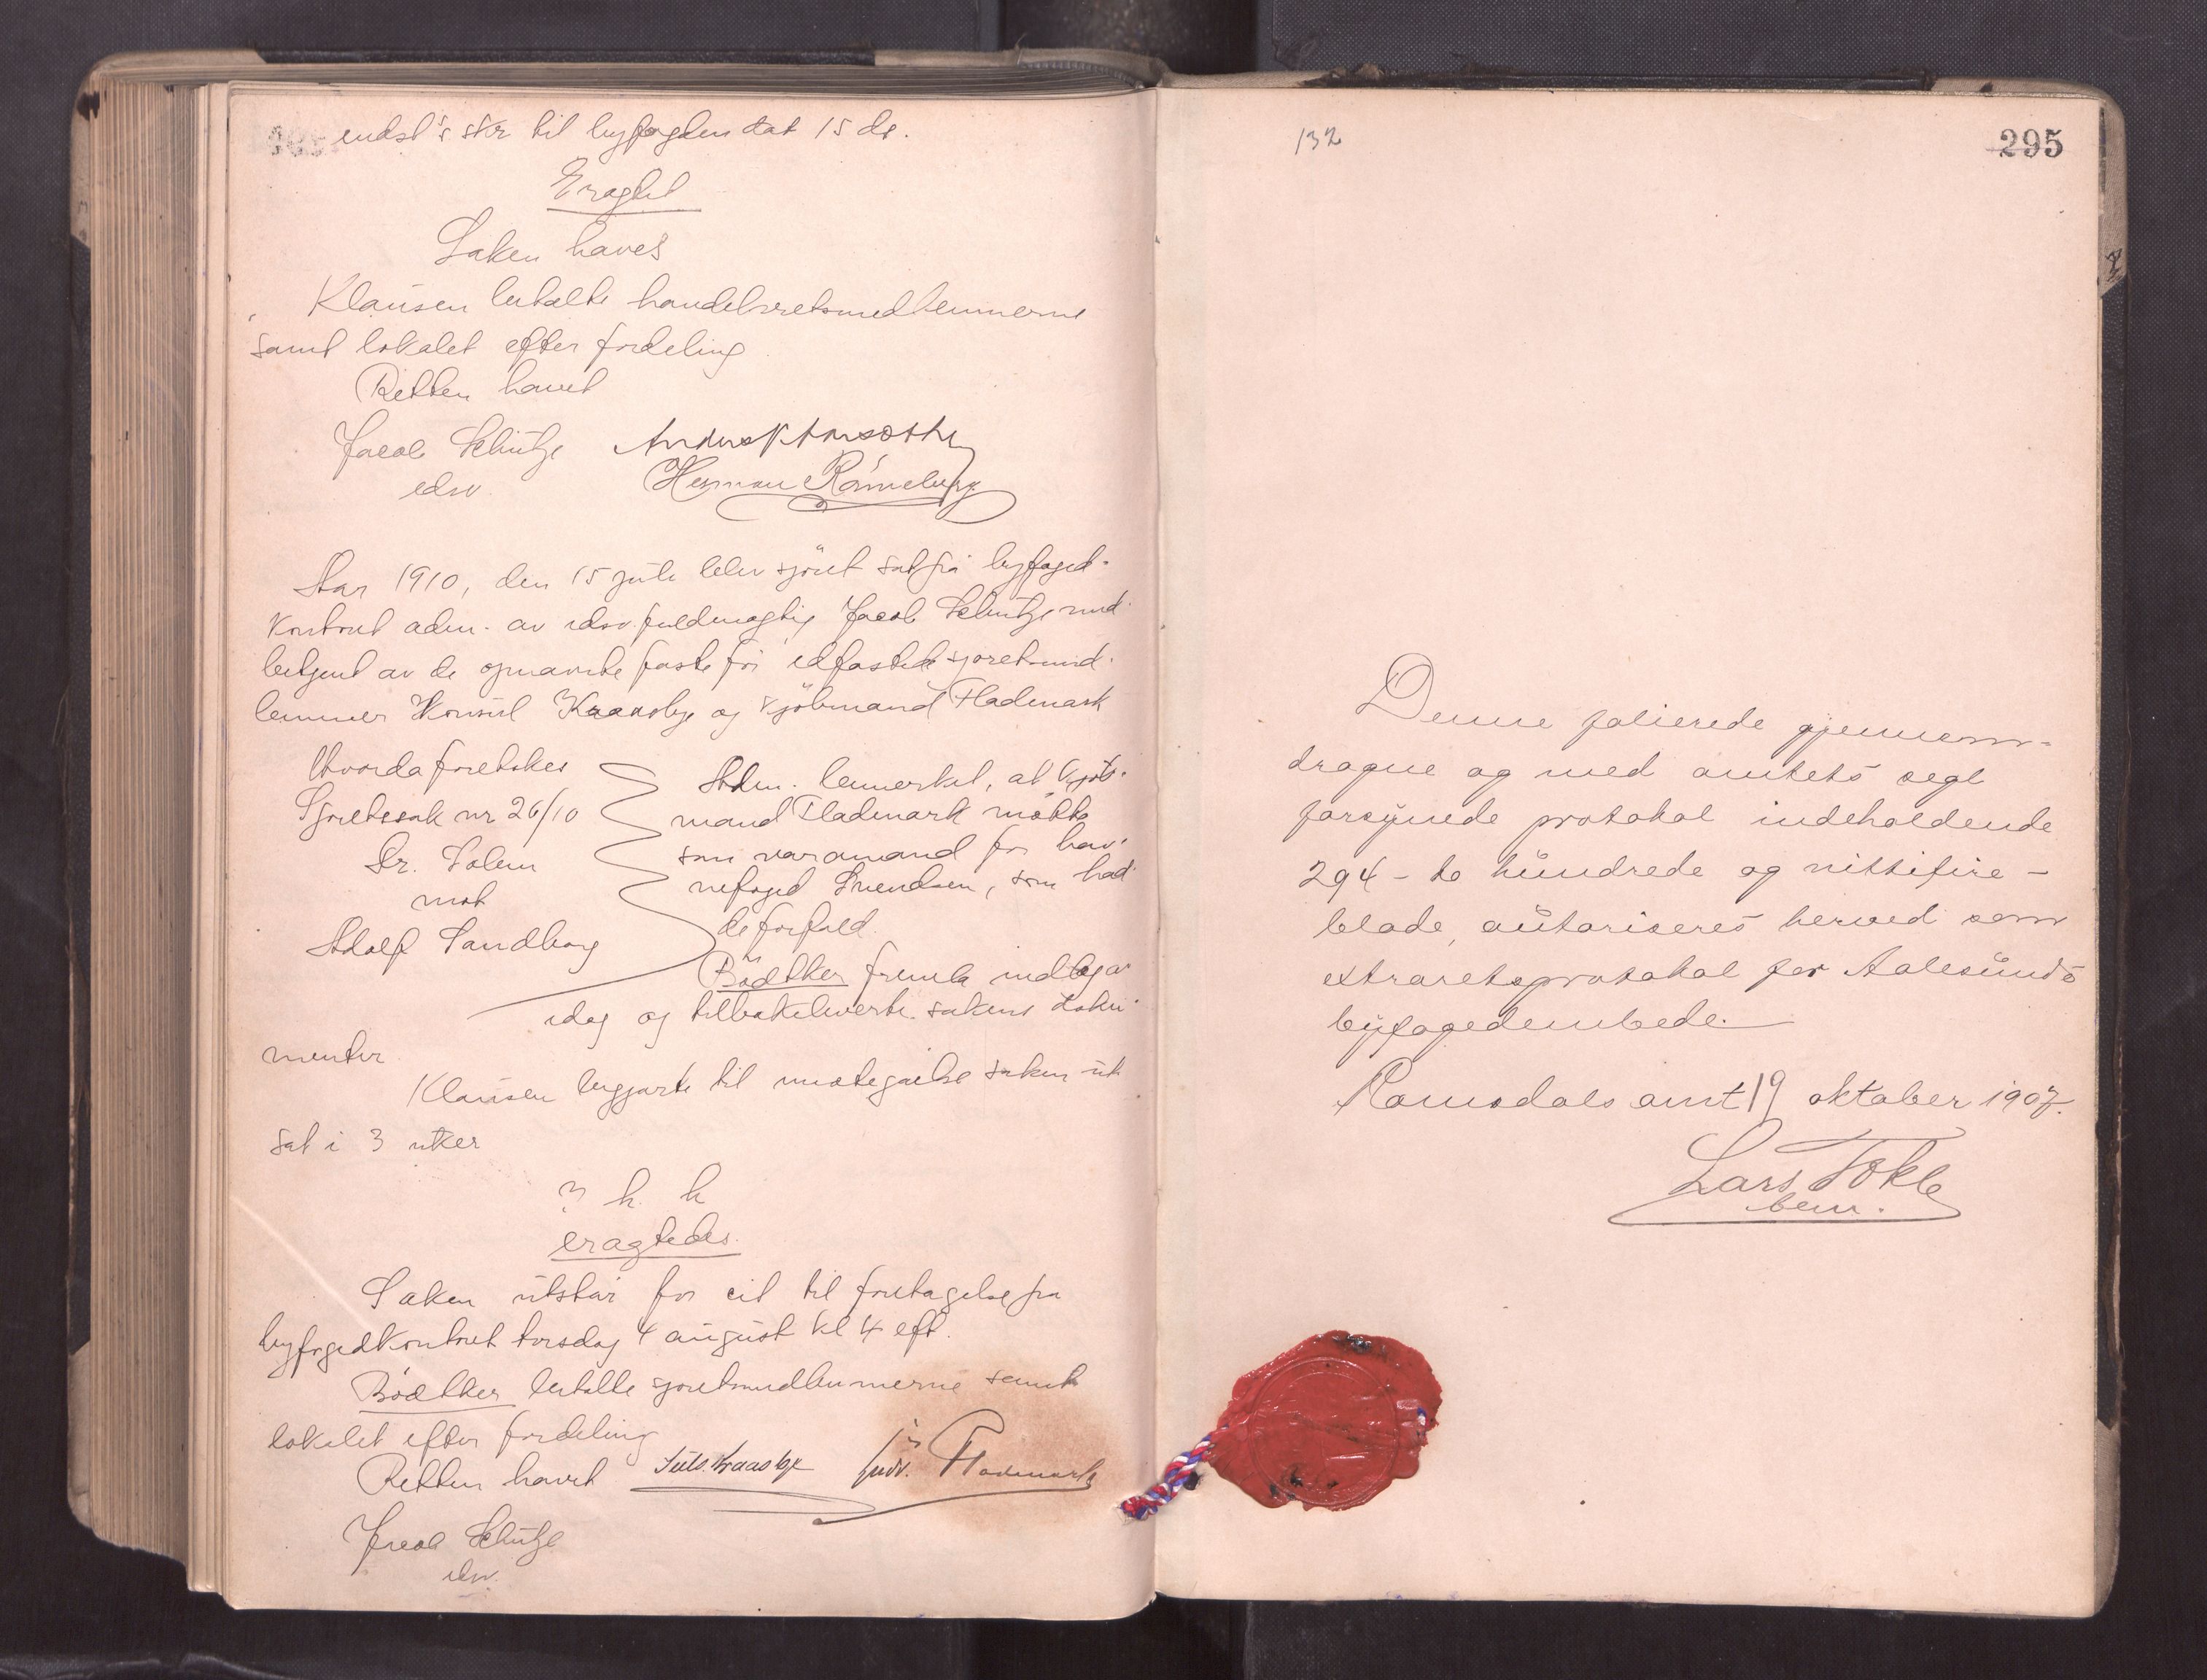 indst's skr til byfogden dat 15 ds.
Eragtet
Saken haves
Klausen betalte handelsretsmedlemmerne
samt lokalet efter fordeling
Retten hævet
Jacob Schütze
edsv. Herman Rönneberg
Aar 1910, den 15 juli blev sjöret sat på byfoged-
kontoret adm. av edsv. fuldmægtig Jacob Schütze med-
betjent av de opnævnte faste för edfæstede sjöretsmed-
lemmer Konsul Kraasbye og kjöbmand Flademark
Hvorda foretokes
Sjöretssak nr 26/10
Dr. Solem
mot
Adolf Sandborg
Adm. bemerket, at kjöb-
mand Flademark mötte
som varamand for hav-
nefoged Svendsen, som had-
de forfald.
Bödtker fremla indlæg av
idag og tilbakeleverte sakens doku-
menter.
Klausen begjærte til imötegåelse saken ut-
sat i 3 uker
eragtedes.
Saken utstår for eit til foretagelse på
byfogedkontoret torsdag 4 august kl 4 eft.
Bödtker betalte sjöretsmedlemmerne samt
lokalet efter fordeling
Retten hævet Juls. Kraasbye Flademark
Jacob Schütze
edsv.
132
295
Denne folierede gjennem-
dragne og med amtets segl
forsynede protokol indeholdende
294 - to hundrede og nittifire -
blade, autoriseres herved som
extraretsprotokol for Aalesunds
byfogedembede.
Romsdals amt 19 oktober 1907.
Lars Tokle
bem.